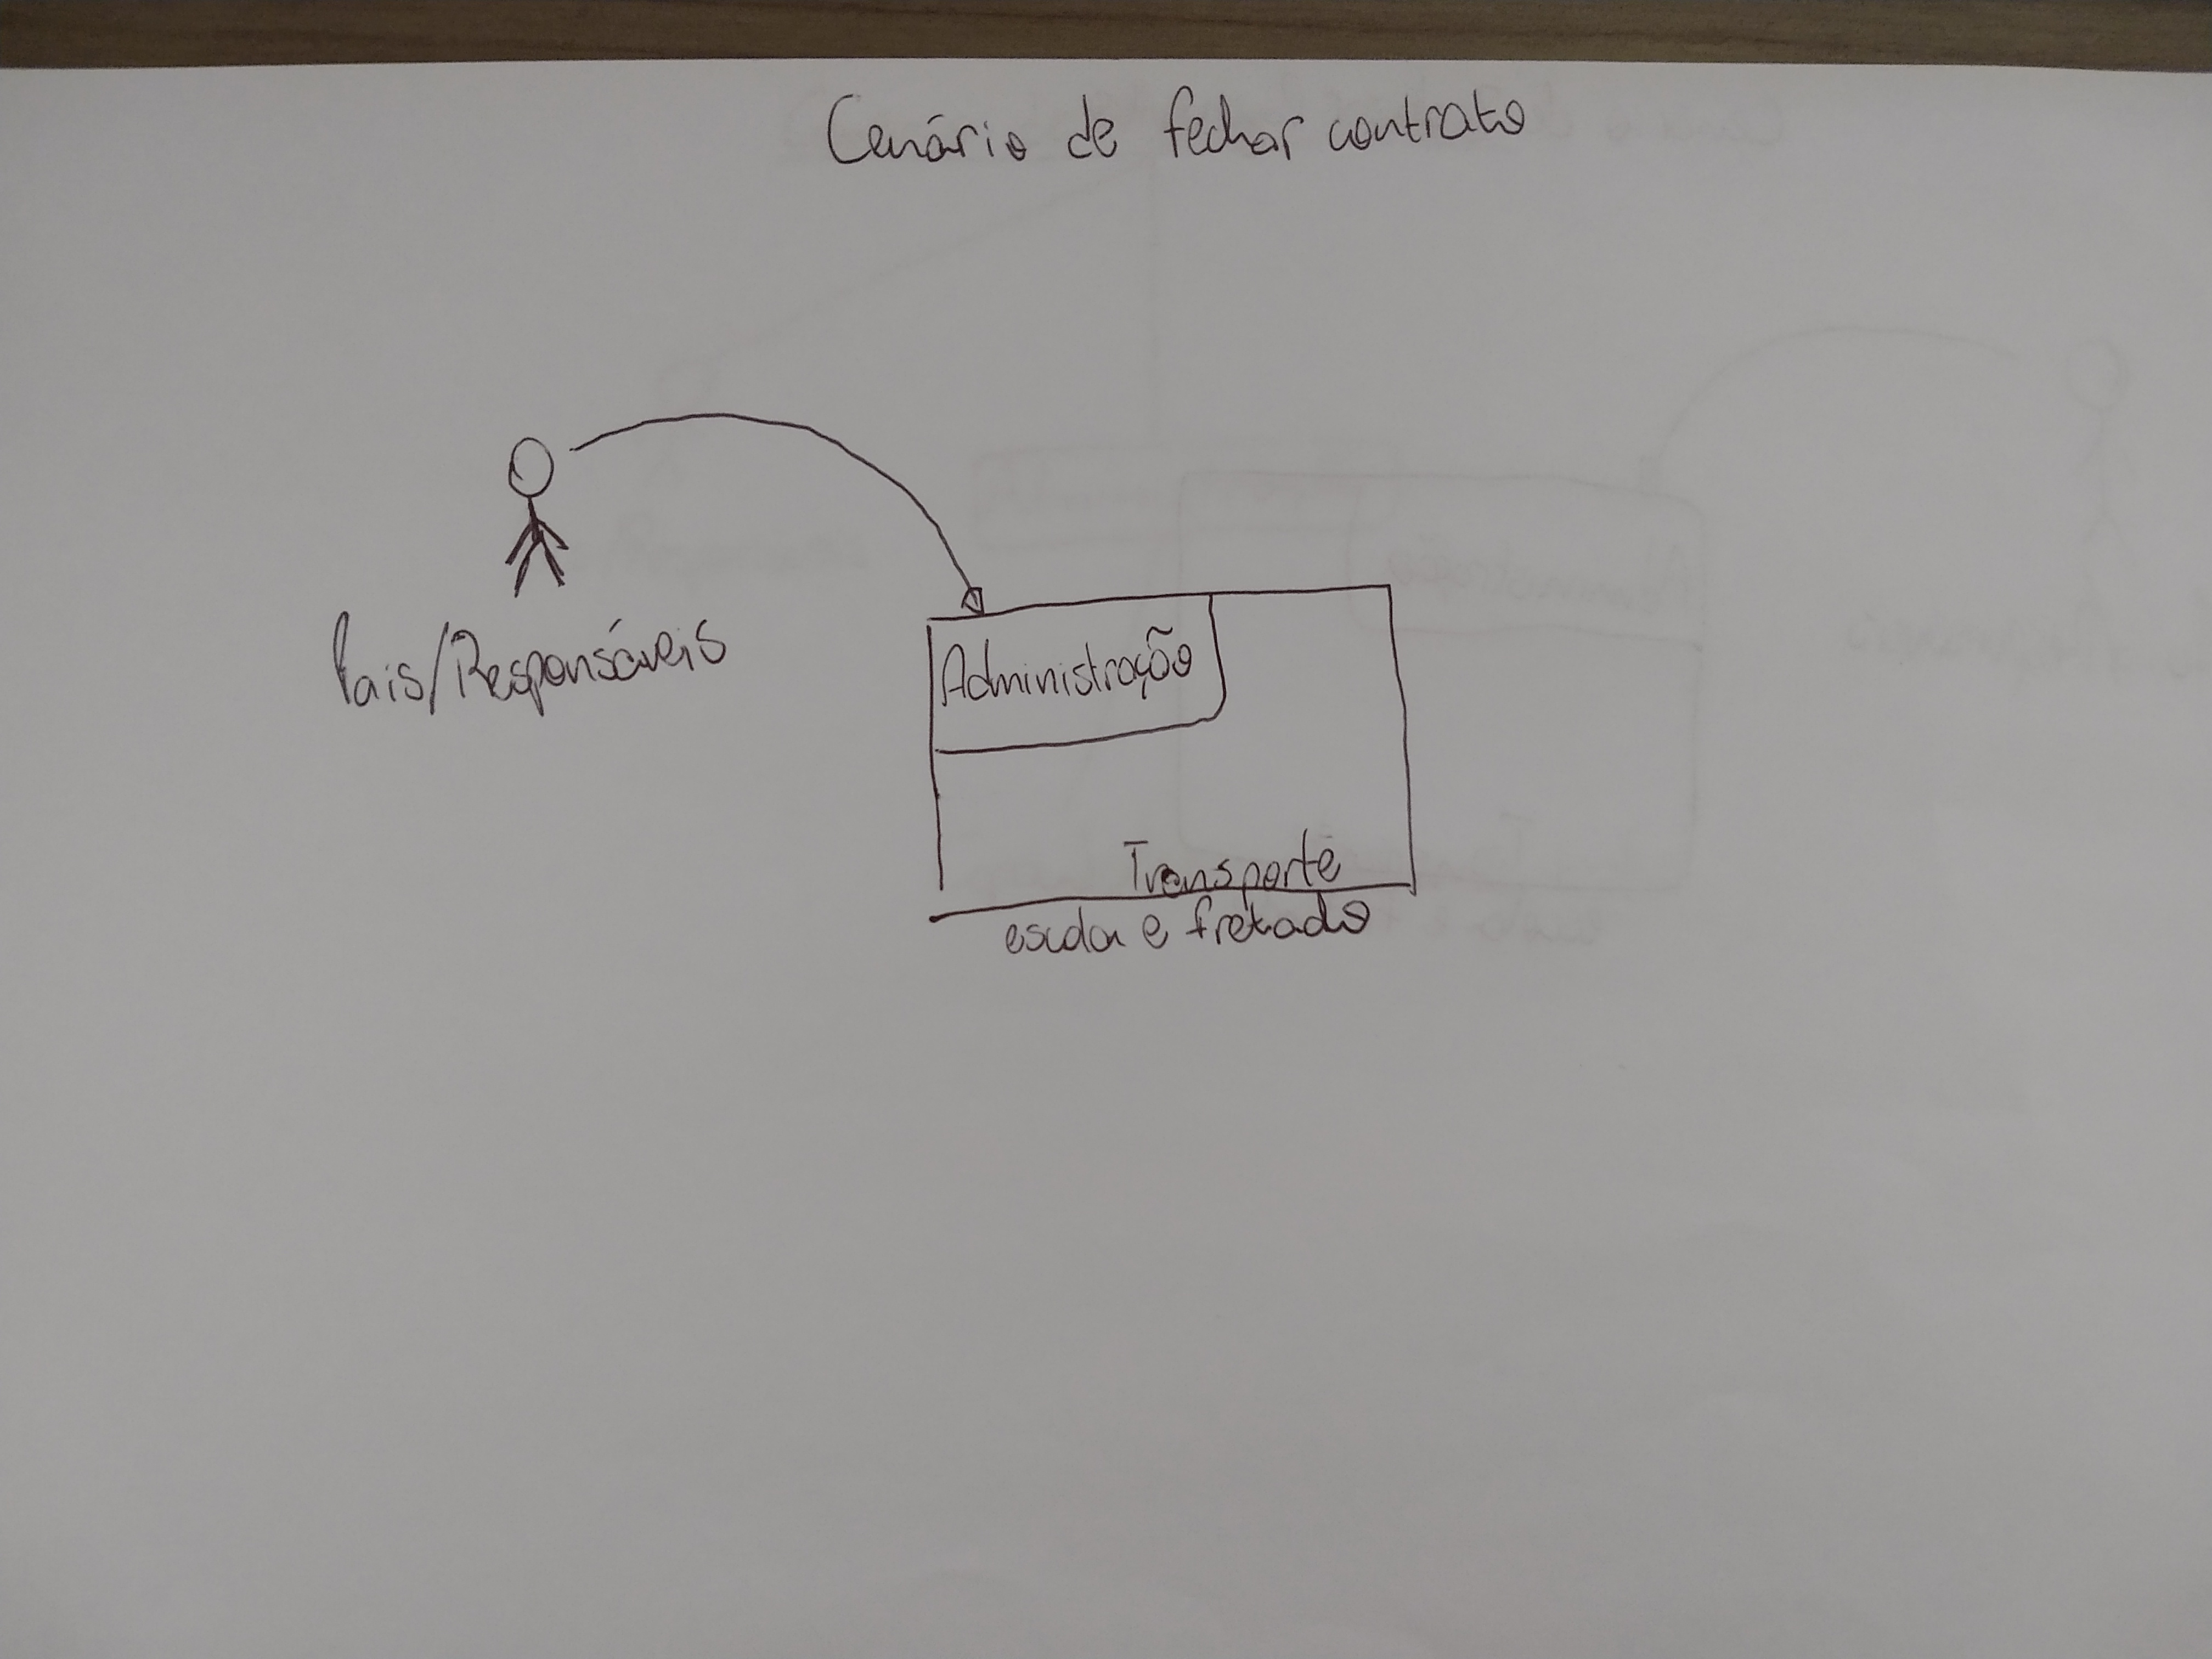 Cenário de fechar contrato
Pais/Responsáveis
Administração
Transporte
escolar e fretado